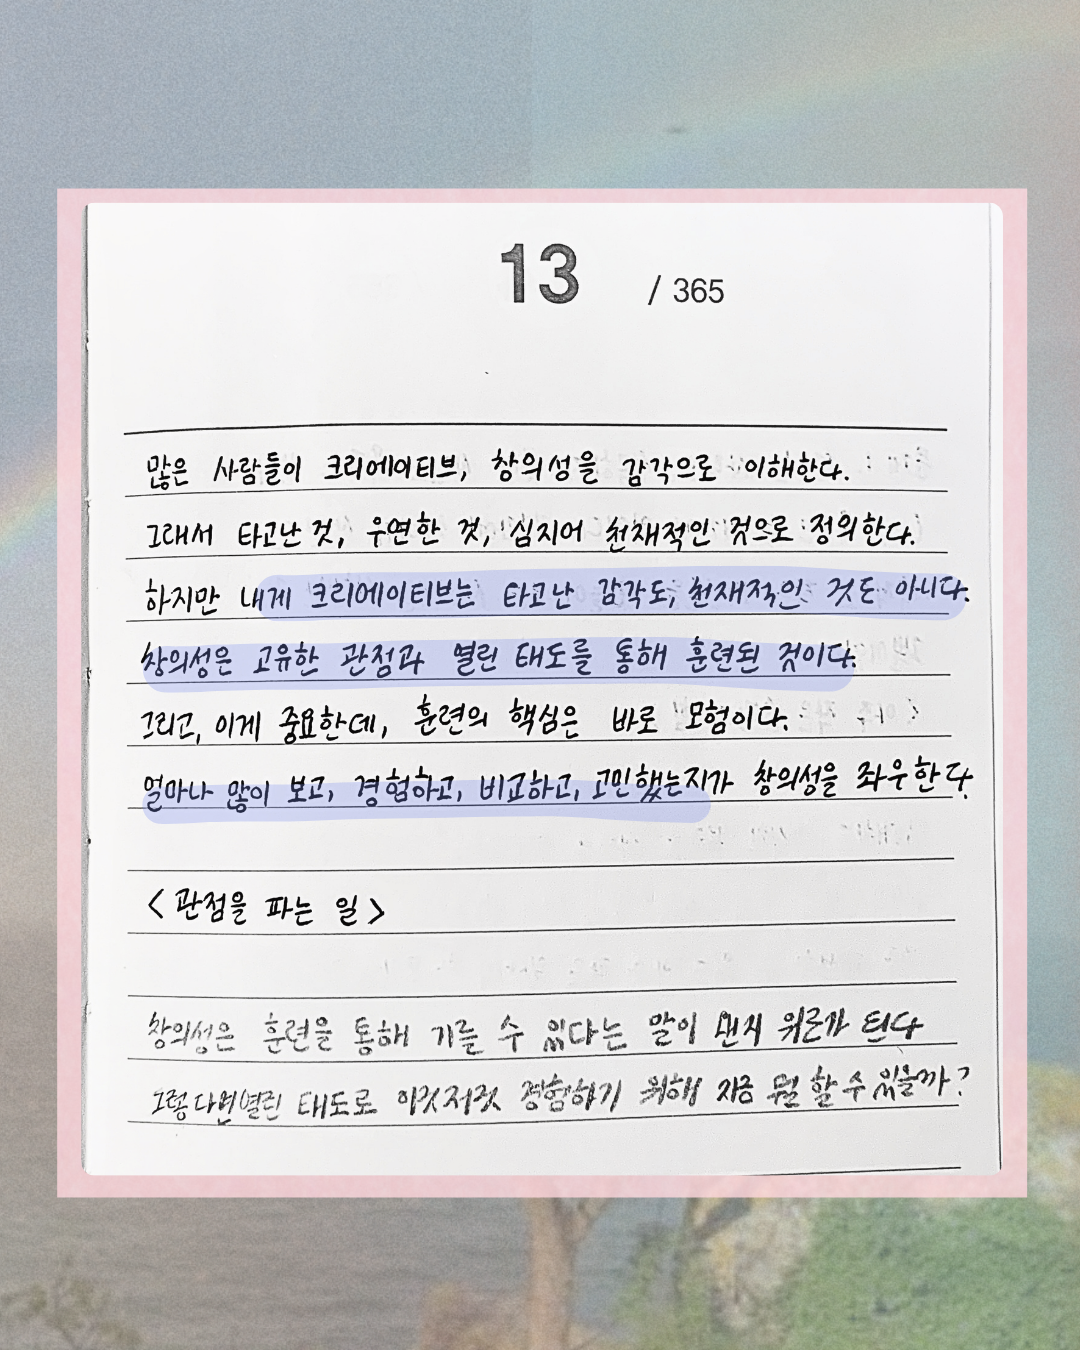 13 / 365
많은 사람들이 크리에이티브, 창의성을 감각으로 이해한다.
그래서 타고난 것, 우연한 것, 심지어 천재적인 것으로 정의한다.
하지만 내게 크리에이티브는 타고난 감각도, 천재적인 것도 아니다.
창의성은 고유한 관점과 열린 태도를 통해 훈련된 것이다.
그리고, 이게 중요한데, 훈련의 핵심은 바로 모험이다.
얼마나 많이 보고, 경험하고, 비교하고, 고민했는지가 창의성을 좌우한다.
<관점을 파는 일>
창의성은 훈련을 통해 기를 수 있다는 말이 왠지 위로가 된다
그렇다면 열린 태도로 이것저것 경험하기 위해 지금 뭘 할 수 있을까?